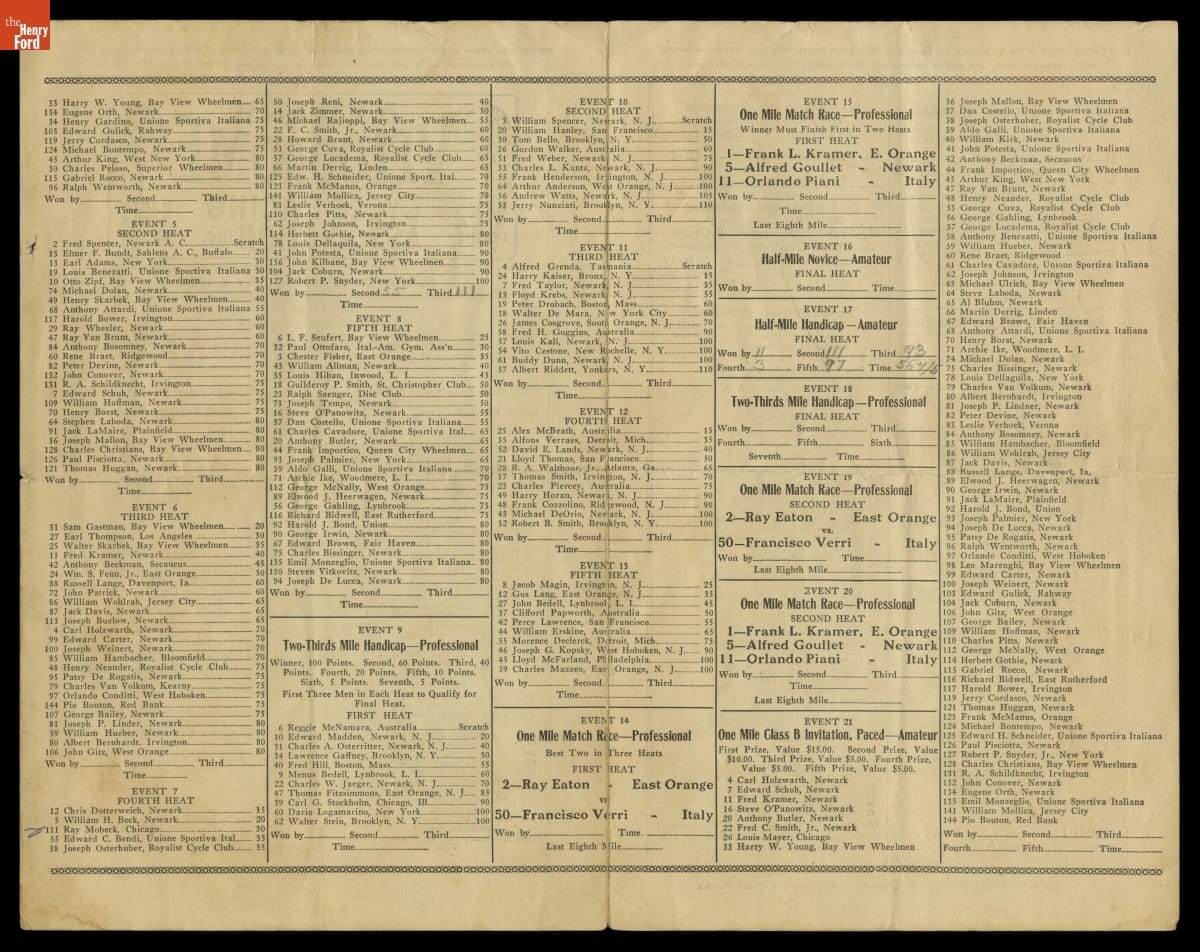 the
Henry
Ford
33 Harry W. Young, Bay View Wheelmen 65
134 Eugene Orth, Newark 70
34 Henry Gardino, Unione Sportiva Italiana 75
103 Edward Gulick, Rahway 75
119 Jerry Cordasco, Newark 75
124 Michael Bontempo, Newark 75
45 Arthur King, West New York 80
30 Charles Peloso, Superior Wheelmen 80
115 Gabriel Rocco, Newark 80
96 Ralph Wentworth, Newark 80
Won by Second Third
Time
EVENT 5
SECOND HEAT
2 Fred Spencer, Newark A. C. Scratch
15 Elmer F. Bundt, Sahlens A. C., Buffalo 20
13 Earl Adams, New York 30
19 Louis Benezatti, Unione Sportiva Italiana 30
10 Otto Zipf, Bay View Wheelmen 35
74 Michael Dolan, Newark 40
49 Henry Skarbek, Bay View Wheelmen 40
68 Anthony Attardi, Unione Sportiva Italiana 55
117 Harold Bower, Irvington 60
29 Ray Wheeler, Newark 60
47 Ray Van Brunt, Newark 60
84 Anthony Bosomney, Newark 70
60 Rene Braet, Ridgewood 70
82 Peter Devine, Newark 70
132 John Conover, Newark 70
131 R. A. Schildknecht, Irvington 75
7 Edward Schuh, Newark 75
109 William Hoffman, Newark 75
70 Henry Borst, Newark 75
64 Stephen Laboda, Newark 80
91 Jack LaMaire, Plainfield 80
36 Joseph Mallon, Bay View Wheelmen 80
128 Charles Christians, Bay View Wheelmen 80
126 Paul Pisciotta, Newark 80
121 Thomas Huggan, Newark 80
Won by Second Third
Time
EVENT 6
THIRD HEAT
31 Sam Gastman, Bay View Wheelmen 20
27 Earl Thompson, Los Angeles 30
25 Walter Skarbek, Bay View Wheelmen 35
11 Fred Kramer, Newark 40
42 Anthony Beckman, Secaucus 45
24 Wm. S. Fenn, Jr., East Orange 50
88 Russell Lange, Davenport, Ia. 60
72 John Patrick, Newark 60
86 William Wohlrab, Jersey City 65
87 Jack Davis, Newark 65
113 Joseph Buelow, Newark 65
4 Carl Holzwarth, Newark 70
99 Edward Carter, Newark 70
100 Joseph Weinert, Newark 70
85 William Hambacher, Bloomfield 70
48 Henry Neander, Royalist Cycle Club 75
95 Patsy De Rogatis, Newark 75
79 Charles Van Volkum, Kearny 75
97 Orlando Conditti, West Hoboken 75
144 Pio Bouton, Red Bank 75
107 George Bailey, Newark 75
81 Joseph P. Linder, Newark 80
59 William Hueber, Newark 80
80 Albert Bernhardt, Irvington 80
106 John Gitz, West Orange 80
Won by Second Third
Time
EVENT 7
FOURTH HEAT
12 Chris Dotterweich, Newark 15
5 William H. Beck, Newark 20
111 Ray Mobeck, Chicago 30
55 Edward C. Bendi, Unione Sportiva Ital. 35
38 Joseph Osterhuber, Royalist Cycle Club 35
50 Joseph Reni, Newark 40
14 Jack Zimmer, Newark 40
46 Michael Rajioppi, Bay View Wheelmen 55
22 F. C. Smith, Jr., Newark 60
28 Howard Brant, Newark 60
53 George Cuva, Royalist Cycle Club 60
57 George Lucadema, Royalist Cycle Club 65
66 Martin Derrig, Linden 65
125 Edw. H. Schneider, Unione Sport, Ital. 70
123 Frank McManus, Orange 70
141 William Mollica, Jersey City 70
83 Leslie Verhoek, Verona 75
110 Charles Pitts, Newark 75
62 Joseph Johnson, Irvington 75
114 Herbert Gothie, Newark 80
78 Louis Dellaquila, New York 80
41 John Potesta, Unione Sportiva Italiana 90
136 John Kilbane, Bay View Wheelmen 90
104 Jack Coburn, Newark 90
127 Robert P. Snyder, New York 100
Won by Second 55 Third 111
Time
EVENT 8
FIFTH HEAT
6 L. F. Seufert, Bay View Wheelmen 25
32 Paul Ottofaro, Ital.-Am. Gym. Ass'n 30
3 Chester Fisher, East Orange 35
43 William Allman, Newark 40
35 Louis Hiban, Inwood, L. I. 45
18 Guilderoy P. Smith, St. Christopher Club 50
23 Ralph Saenger, Disc Club 50
73 Joseph Tempo, Newark 50
16 Steve O'Panowitz, Newark 55
37 Dan Costello, Unione Sportiva Italiana 55
61 Charles Cavadore, Unione Sportiva Ital. 65
20 Anthony Butler, Newark 65
44 Frank Importico, Queen City Wheelmen 65
93 Joseph Palmier, New York 65
39 Aldo Galli, Unione Sportiva Italiana 70
71 Archie Ike, Woodmere, L. I. 70
112 George McNally, West Orange 75
89 Elwood J. Heerwagen, Newark 75
56 George Gahling, Lynbrook 75
116 Richard Bidwell, East Rutherford 75
92 Harold J. Bond, Union 80
90 George Irwin, Newark 80
67 Edward Brown, Fair Haven 80
75 Charles Bissinger, Newark 80
135 Emil Monzeglio, Unione Sportiva Italiana 80
130 Steven Vitkovitz, Newark 80
94 Joseph De Lucca, Newark 80
Won by Second Third
Time
EVENT 9
Two-Thirds Mile Handicap—Professional
Winner, 100 Points. Second, 60 Points. Third, 40
Points. Fourth, 20 Points. Fifth, 10 Points.
Sixth, 5 Points. Seventh, 5 Points.
First Three Men in Each Heat to Qualify for
Final Heat.
FIRST HEAT
6 Reggie McNamara, Australia Scratch
10 Edward Madden, Newark, N. J. 20
31 Charles A. Osterritter, Newark, N. J. 40
34 Lawrence Gaffney, Brooklyn, N. Y. 50
40 Fred Hill, Boston, Mass. 55
9 Menus Bedell, Lynbrook, L. I. 60
22 Charles W. Jaeger, Newark, N. J. 70
47 Thomas Fitzsimmons, East Orange, N. J. 85
39 Carl G. Stockholm, Chicago, Ill. 90
60 Dario Logamarino, New York 100
62 Walter Stein, Brooklyn, N. Y. 100
Won by Second Third
Time
EVENT 10
SECOND HEAT
3 William Spencer, Newark, N. J. Scratch
20 William Hanley, San Francisco 15
30 Tom Bello, Brooklyn, N. Y. 35
36 Gordon Walker, Australia 60
51 Fred Weber, Newark N. J. 75
33 Charles L. Kuntz, Newark, N. J. 90
55 Frank Henderson, Irvington, N. J. 100
64 Arthur Anderson, West Orange, N. J. 100
56 Andrew Watts, Newark, N. J. 105
53 Jerry Nunziati, Brooklyn, N. Y. 110
Won by Second Third
Time
EVENT 11
THIRD HEAT
4 Alfred Grenda, Tasmania Scratch
24 Harry Kaiser, Bronx, N. Y. 15
7 Fred Taylor, Newark, N. J. 35
13 Floyd Krebs, Newark, N. J. 55
19 Peter Drobach, Boston, Mass. 60
18 Walter De Mara, New York City 60
26 James Cosgrove, South Orange, N. J. 70
38 Fred H. Goggins, Australia 80
57 Louis Kali, Newark, N. J. 90
54 Vito Cestone, New Rochelle, N. Y. 100
61 Buddy Dunn, Newark, N. J. 100
57 Albert Riddett, Yonkers, N. Y. 110
Won by Second Third
Time
EVENT 12
FOURTH HEAT
25 Alec McBeath, Australia 15
35 Alfons Verraes, Detroit, Mich. 35
52 David E. Lands, Newark, N. J. 40
21 Lloyd Thomas, San Francisco 50
28 R. A. Walthour, Jr., Atlanta, Ga. 65
17 Thomas Smith, Irvington, N. J. 70
23 Charles Piercey, Australia 75
49 Harry Horan, Newark, N. J. 90
48 Frank Cozzolino, Ridgewood, N. J. 90
43 Michael DeOrio, Newark, N. J. 100
32 Robert B. Smith, Brooklyn, N. Y. 100
Won by Second Third
Time
EVENT 13
FIFTH HEAT
8 Jacob Magin, Irvington, N. J. 25
12 Gus Lang, East Orange, N. J. 35
27 John Bedell, Lynbrook, L. I. 45
37 Clifford Papworth, Australia 50
42 Percy Lawrence, San Francisco 55
44 William Erskine, Australia 65
55 Morence Declerck, Detroit, Mich. 75
46 Joseph G. Kopsky, West Hoboken, N. J. 90
45 Lloyd McFarland, Philadelphia 100
59 Charles Mazzeo, East Orange, N. J. 100
Won by Second Third
Time
EVENT 14
One Mile Match Race—Professional
Best Two in Three Heats
FIRST HEAT
2—Ray Eaton - East Orange
vs
50—Francisco Verri - Italy
Won by Time.
Last Eighth Mile
EVENT 15
One Mile Match Race—Professional
Winner Must Finish First in Two Heats
FIRST HEAT
1—Frank L. Kramer, E. Orange
5—Alfred Goullet - Newark
11—Orlando Piani - Italy
Won by Second Third
Time
Last Eighth Mile
EVENT 16
Half-Mile Novice—Amateur
FINAL HEAT
Won by Second Third
EVENT 17
Half-Mile Handicap—Amateur
FINAL HEAT
Won by 11 Second 111 Third 93
Fourth 3 Fifth 97 Time 55 4/5
EVENT 18
Two-Thirds Mile Handicap—Professional
FINAL HEAT
Won by Second Third
Fourth Fifth Sixth
Seventh Time
EVENT 19
One Mile Match Race—Professional
SECOND HEAT
2—Ray Eaton - East Orange
vs.
50—Francisco Verri - Italy
Won by Time
Last Eighth Mile
EVENT 20
One Mile Match Race—Professional
SECOND HEAT
1—Frank L. Kramer, E. Orange
5—Alfred Goullet - Newark
11—Orlando Piani - Italy
Won by Second Third
Time
Last Eighth Mile
EVENT 21
One Mile Class B Invitation, Paced—Amateur
First Prize, Value $15.00. Second Prize, Value
$10.00. Third Prize, Value $5.00. Fourth Prize,
Value $5.00. Fifth Prize, Value $5.00.
4 Carl Holzwarth, Newark
7 Edward Schuh, Newark
11 Fred Kramer, Newark
16 Steve O'Panowitz, Newark
20 Anthony Butler, Newark
22 Fred C. Smith, Jr., Newark
26 Louis Mayer, Chicago
33 Harry W. Young, Bay View Wheelmen
36 Joseph Mallon, Bay View Wheelmen
37 Dan Costello, Unione Sportiva Italiana
38 Joseph Osterhuber, Royalist Cycle Club
39 Aldo Galli, Unione Sportiva Italiana
40 William Kirk, Newark
41 John Potesta, Unione Sportiva Italiana
42 Anthony Beckman, Secaucus
44 Frank Importico, Queen City Wheelmen
45 Arthur King, West New York
47 Ray Van Brunt, Newark
48 Henry Neander, Royalist Cycle Club
53 George Cuva, Royalist Cycle Club
56 George Gahling, Lynbrook
57 George Lucadema, Royalist Cycle Club
58 Anthony Benezatti, Unione Sportiva Italiana
59 William Hueber, Newark
60 Rene Braet, Ridgewood
61 Charles Cavadore, Unione Sportiva Italiana
62 Joseph Johnson, Irvington
63 Michael Ulrich, Bay View Wheelmen
64 Steve Laboda, Newark
65 Al Bluhm, Newark
66 Martin Derrig, Linden
67 Edward Brown, Fair Haven
68 Anthony Attardi, Unione Sportiva Italiana
70 Henry Borst, Newark
71 Archie Ike, Woodmere, L. I.
74 Michael Dolan, Newark
75 Charles Bissinger, Newark
78 Louis Dellaguila, New York
79 Charles Van Volkum, Newark
80 Albert Bernhardt, Irvington
81 Joseph P. Lindner, Newark
82 Peter Devine, Newark
83 Leslie Verhoek, Verona
84 Anthony Bosomney, Newark
85 William Hambacher, Bloomfield
86 William Wohlrab, Jersey City
87 Jack Davis, Newark
88 Russell Lange, Davenport, Ia.
89 Elwood J. Heerwagen, Newark
90 George Irwin, Newark
91 Jack LaMaire, Plainfield
92 Harold J. Bond, Union
93 Joseph Palmier, New York
94 Joseph De Lucca, Newark
95 Patsy De Rogatis, Newark
96 Ralph Wentworth, Newark
97 Orlando Conditti, West Hoboken
98 Leo Marenghi, Bay View Wheelmen
99 Edward Carter, Newark
100 Joseph Weinert, Newark
103 Edward Gulick, Rahway
104 Jack Coburn, Newark
106 John Gitz, West Orange
107 George Bailey, Newark
109 William Hoffman, Newark
110 Charles Pitts, Newark
112 George McNally, West Orange
114 Herbert Gothie, Newark
115 Gabriel Rocco, Newark
116 Richard Bidwell, East Rutherford
117 Harold Bower, Irvington
119 Jerry Cordasco, Newark
121 Thomas Huggan, Newark
123 Frank McManus, Orange
124 Michael Bontempo, Newark
125 Edward H. Schneider, Unione Sportiva Italiana
126 Paul Pisciotta, Newark
127 Robert P. Snyder, Jr., New York
128 Charles Christians, Bay View Wheelmen
131 R. A. Schildknecht, Irvington
132 John Conover, Newark
134 Eugene Orth, Newark
135 Emil Monzeglio, Unione Sportiva Italiana
141 William Mollica, Jersey City
144 Pio Bouton, Red Bank
Won by Second Third
Fourth Fifth Time